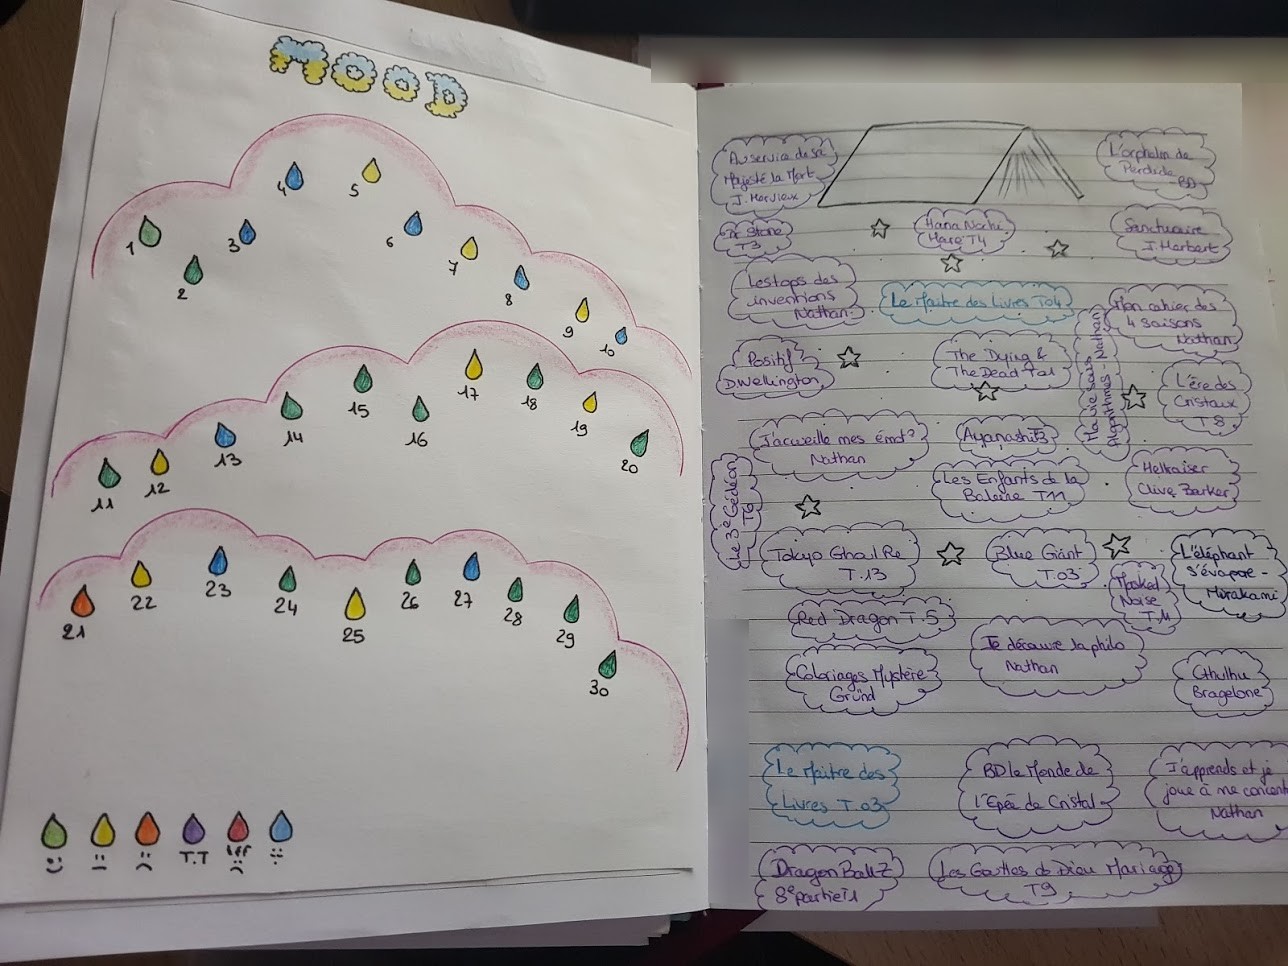 MOOD
1
2
3
4
5
6
7
8
9
10
11
12
13
14
15
16
17
18
19
20
21
22
23
24
25
26
27
28
29
30
T.T
Au service de sa
Majesté la Mort
J. Hervieux
L'orphelin de
Perdide
BD
Dr Stone
T3
Hana Nochi
Hare T4
Sanctuaire
J. Herbert
Les tops des
inventions
Nathan
Le Maitre des Livres T04
Mon cahier des
4 saisons
Nathan
Positif
D. Wellington
The Dying &
The Dead Ta1
Ma vie sans
algorithmes - Nathan
L'ère des
Cristaux
T 8.
J'accueille mes émot°
Nathan
Ayanashi T3
Les Enfants de la
Baleine T11
Hellraiser
Clive Barker
Le 3e Gédéon
T6
Tokyo Ghoul Re
T.13
Blue Giant
T.03
Masked
Noise
T.11
L'éléphant
s'évapore -
Murakami
Red Dragon T.5
Coloriages Mystère
Gründ
Je découvre la philo
Nathan
Cthulhu
Bragelone
Le Maitre des
Livres T.03
BD le Monde de
l'Epée de Cristal
J'apprends et je
joue à me concent
Nathan
Dragon Ball Z
8e partie T1
Les Gouttes de Dieu Mariage
T9